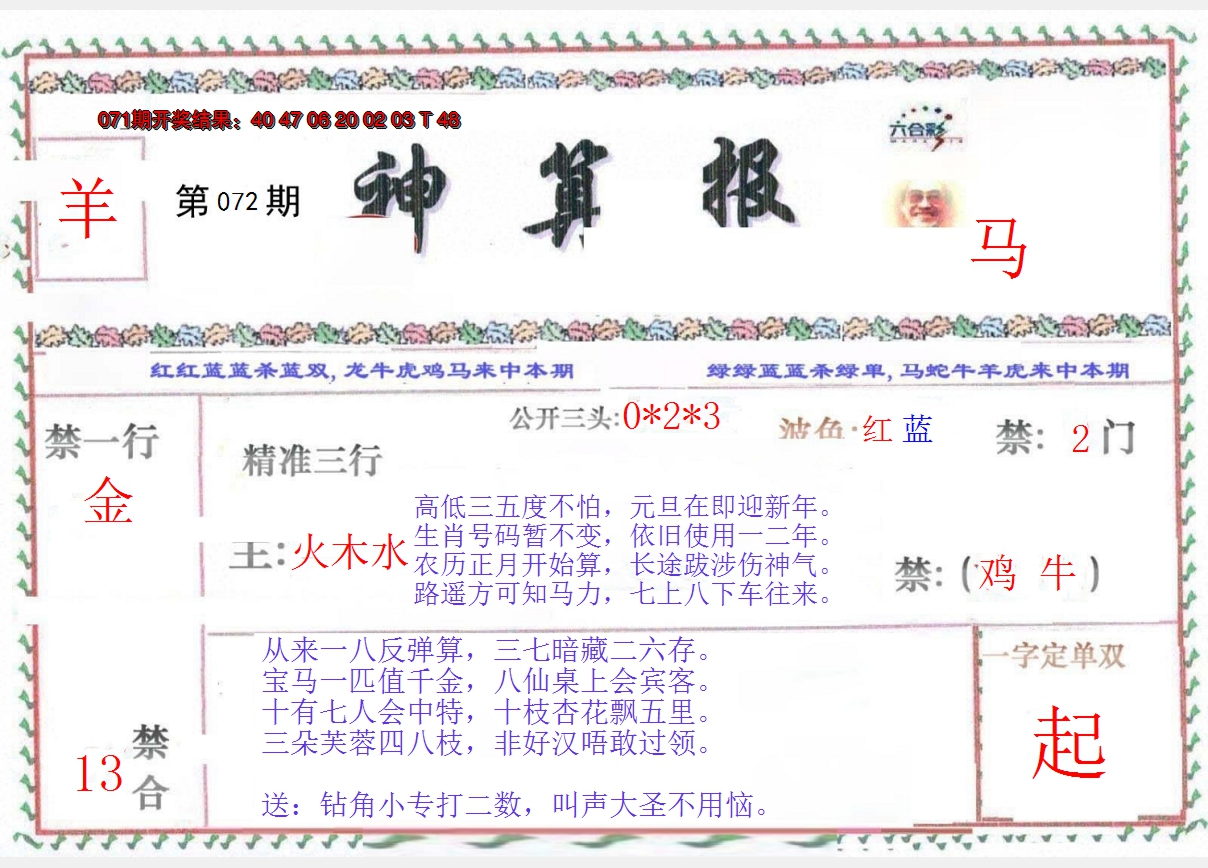 071期开奖结果：40 47 06 20 02 03 T 48
六合彩
羊
第 072 期
神算报
马
红红蓝蓝杀蓝双, 龙牛虎鸡马来中本期
绿绿蓝蓝杀绿单, 马蛇牛羊虎来中本期
公开三头:0*2*3
波色:红 蓝
禁: 2 门
禁一行
金
精准三行
主:火木水
高低三五度不怕，元旦在即迎新年。
生肖号码暂不变，依旧使用一二年。
农历正月开始算，长途跋涉伤神气。
路遥方可知马力，七上八下车往来。
禁:(鸡 牛)
从来一八反弹算，三七暗藏二六存。
宝马一匹值千金，八仙桌上会宾客。
十有七人会中特，十枝杏花飘五里。
三朵芙蓉四八枝，非好汉唔敢过领。
送：钻角小专打二数，叫声大圣不用恼。
13
禁合
一字定单双
起